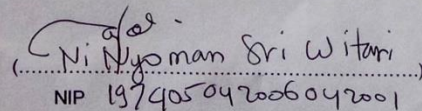 (Ni Nyoman Sri Witari)
NIP 197405042006042001